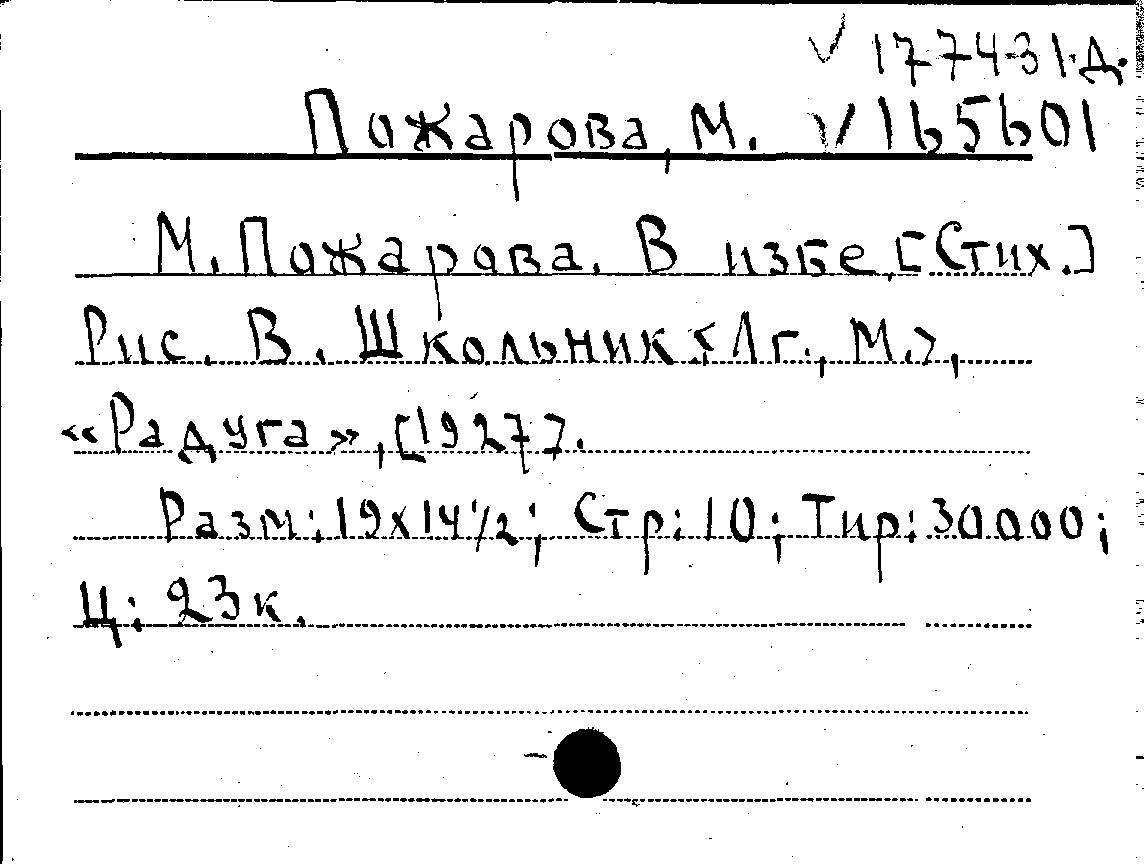 √ 177431-Д.
Пожарова, М. √ 165601
М. Пожарова. В избе. [Стих.]
Рис. В. Школьник. <Лг., М.>,
«Радуга», [1927].
Разм: 19х14½; Стр: 10; Тир: 30000;
Ц: 23к.